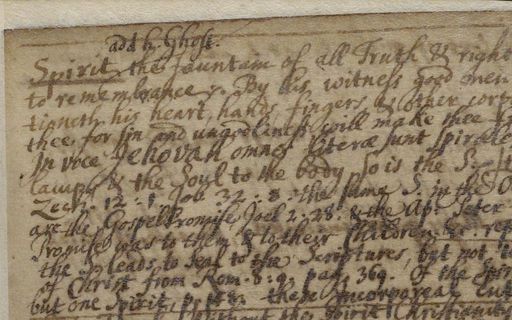 add h. Ghost.
Spirit the fountain of all Truth & right
to remembrance. By his witness good men
his heart, hands fingers & other corp
thee for sin and ungodliness will make thee
In voce Jehovah omnes literæ sunt spirale
lamp, & the Soul to the body so is the S
Zech. 12. 1. Job. 32. 8. the same S. in the O
are the Gospel Promise Joel 2. 28. & the Ap. Peter
Promise was to them & to their Children &c. rep
the leads to Seal to the Scriptures, but not to
of Christ from Rom. 8. 9. pag. 369. Of the Spir
but one Spirit, these Incorporeal
without the Spirit Christianity